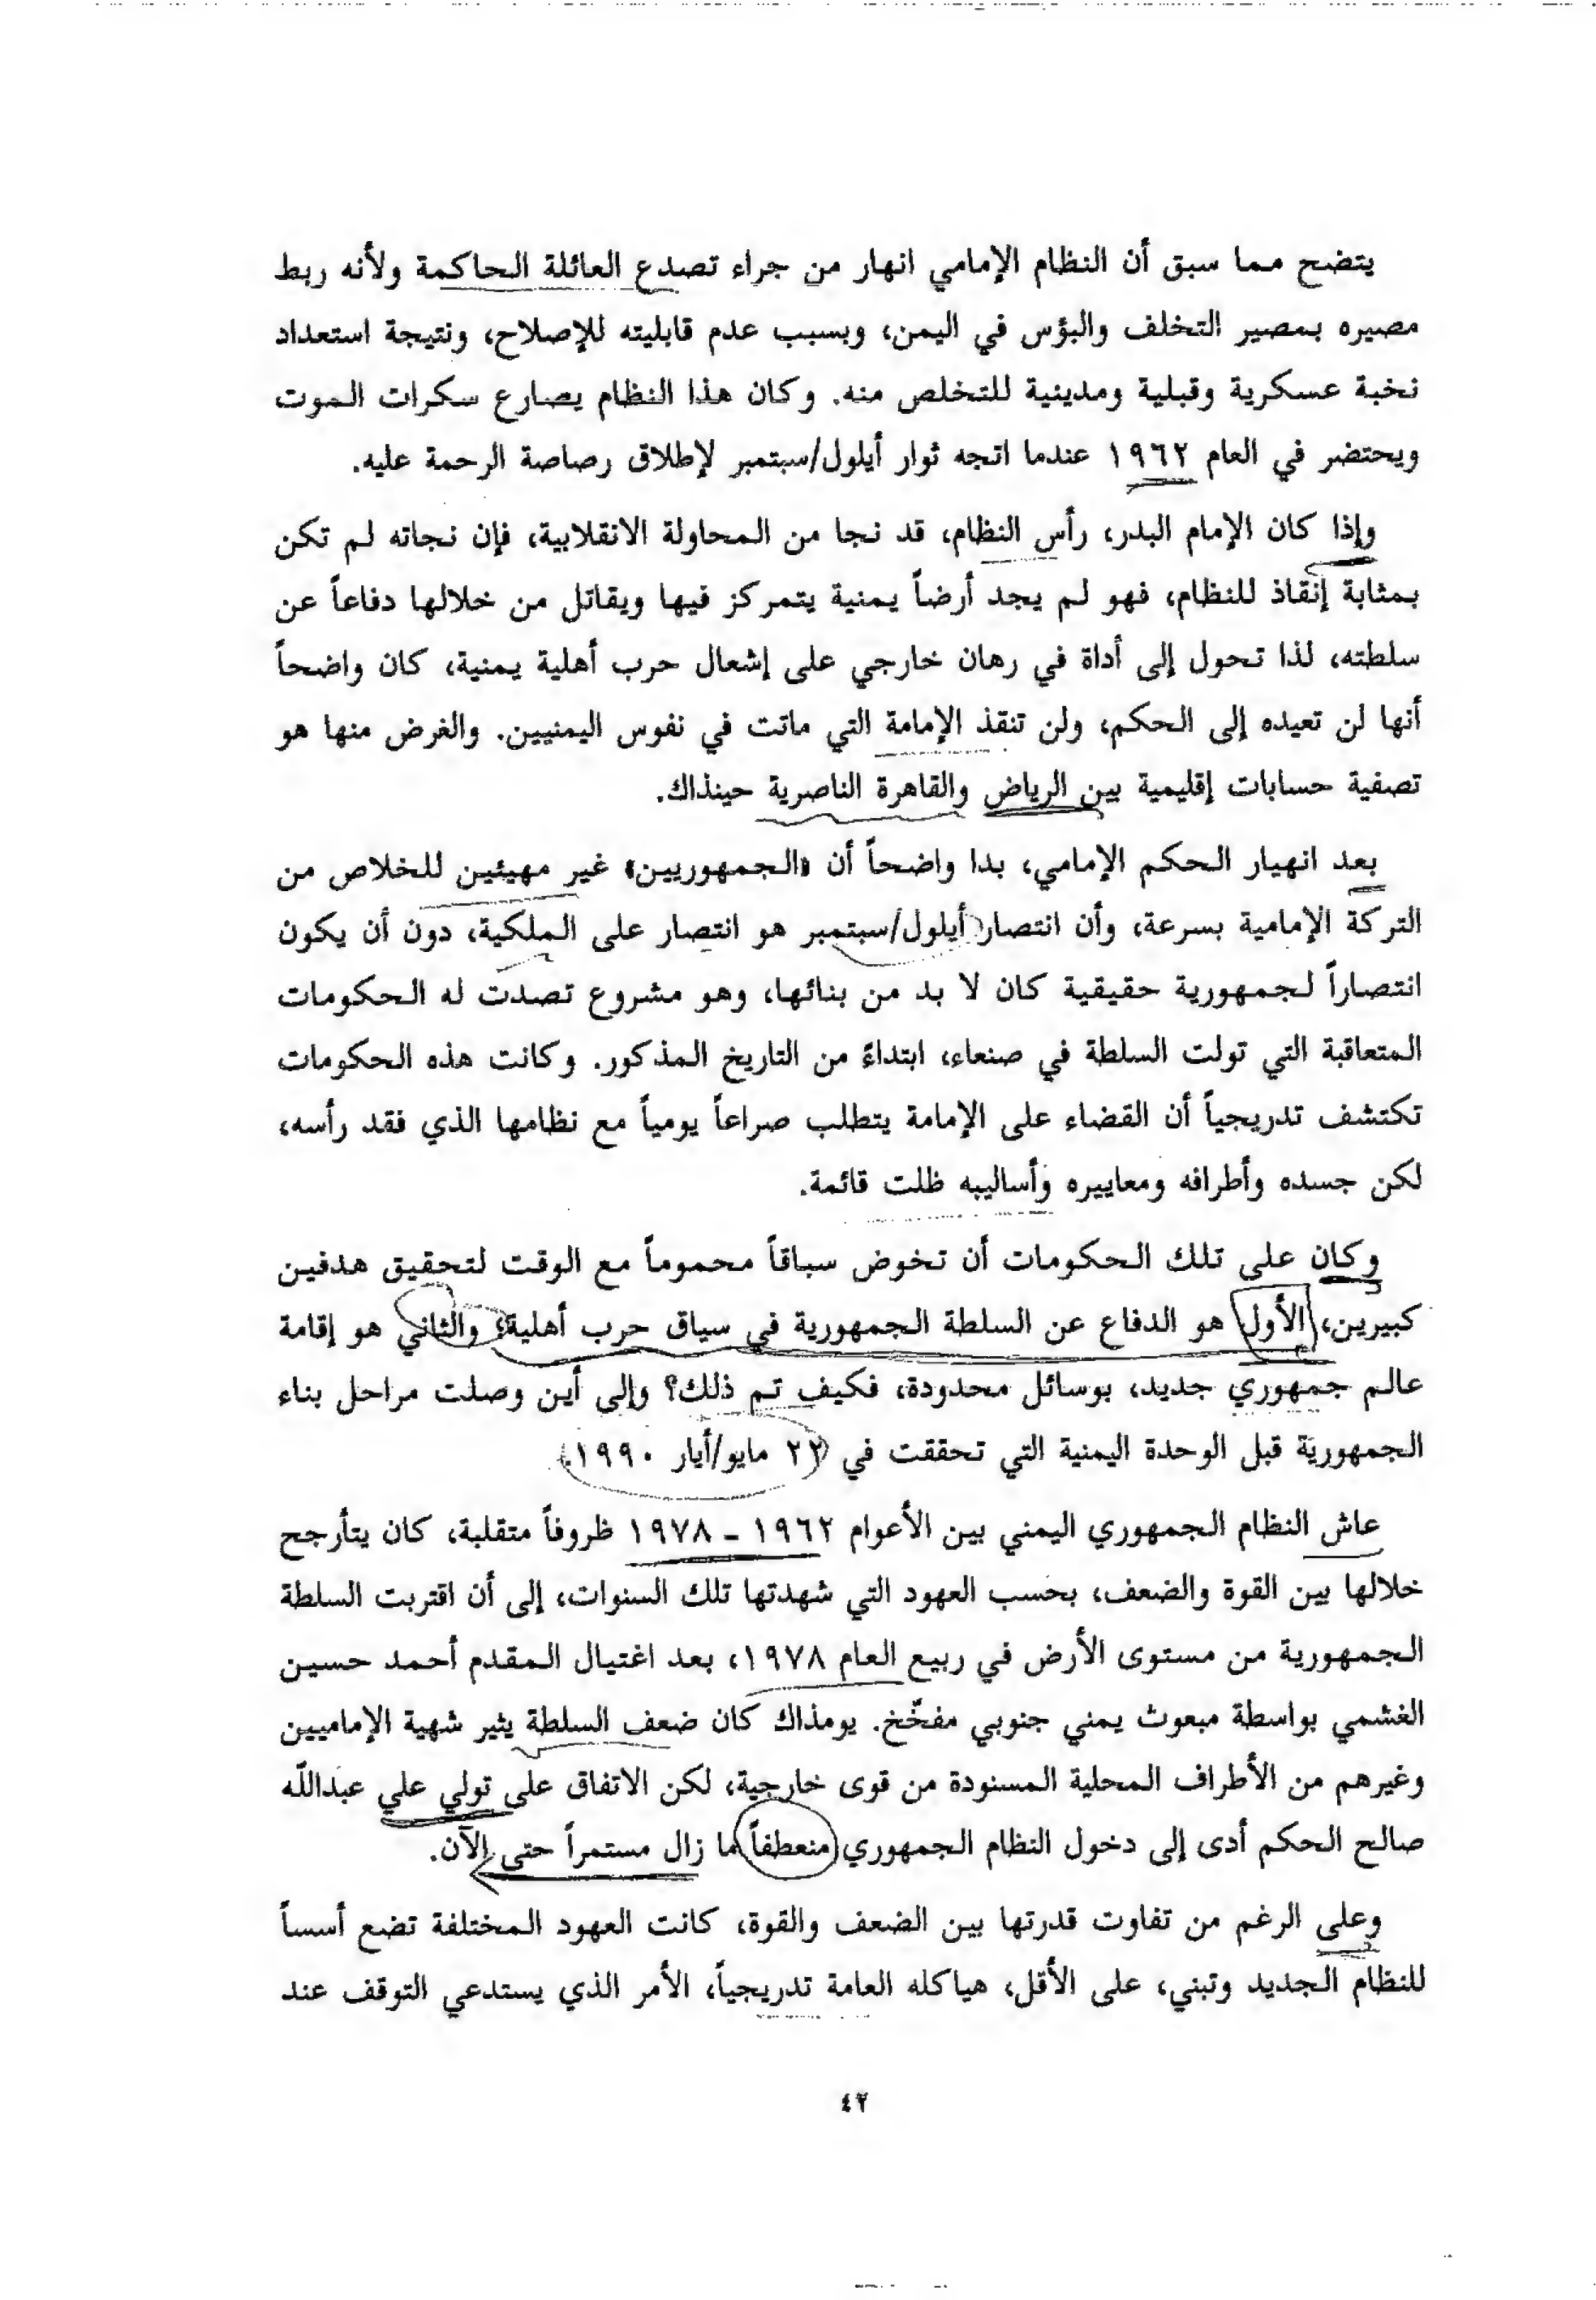 يتضح مما سبق أن النظام الإمامي انهار من جراء تصدع العائلة الحاكمة ولأنه ربط
مصيره بمصير التخلف والبؤس في اليمن، وبسبب عدم قابليته للإصلاح، ونتيجة استعداد
نخبة عسكرية وقبلية ومدينية للتخلص منه. وكان هذا النظام يصارع سكرات الموت
ويحتضر في العام ١٩٦٢ عندما اتجه ثوار أيلول/سبتمبر لإطلاق رصاصة الرحمة عليه.
وإذا كان الإمام البدر، رأس النظام، قد نجا من المحاولة الانقلابية، فإن نجاته لم تكن
بمثابة إنقاذ للنظام، فهو لم يجد أرضاً يمنية يتمركز فيها ويقاتل من خلالها دفاعاً عن
سلطته، لذا تحول إلى أداة في رهان خارجي على إشعال حرب أهلية يمنية، كان واضحاً
أنها لن تعيده إلى الحكم، ولن تنقذ الإمامة التي ماتت في نفوس اليمنيين. والغرض منها هو
تصفية حسابات إقليمية بين الرياض والقاهرة الناصرية حينذاك.
بعد انهيار الحكم الإمامي، بدا واضحاً أن «الجمهوريين» غير مهيئين للخلاص من
التركة الإمامية بسرعة، وأن انتصار أيلول/سبتمبر هو انتصار على الملكية، دون أن يكون
انتصاراً لجمهورية حقيقية كان لا بد من بنائها، وهو مشروع تصدت له الحكومات
المتعاقبة التي تولت السلطة في صنعاء، ابتداءً من التاريخ المذكور. وكانت هذه الحكومات
تكتشف تدريجياً أن القضاء على الإمامة يتطلب صراعاً يومياً مع نظامها الذي فقد رأسه،
لكن جسده وأطرافه ومعاييره وأساليبه ظلت قائمة.
وكان على تلك الحكومات أن تخوض سباقاً محموماً مع الوقت لتحقيق هدفين
كبيرين، الأول هو الدفاع عن السلطة الجمهورية في سياق حرب أهلية؛ والثاني هو إقامة
عالم جمهوري جديد، بوسائل محدودة، فكيف تم ذلك؟ وإلى أين وصلت مراحل بناء
الجمهورية قبل الوحدة اليمنية التي تحققت في (٢٢ مايو/أيار ١٩٩٠).
عاش النظام الجمهوري اليمني بين الأعوام ١٩٦٢ - ١٩٧٨ ظروفاً متقلبة، كان يتأرجح
خلالها بين القوة والضعف، بحسب العهود التي شهدتها تلك السنوات، إلى أن اقتربت السلطة
الجمهورية من مستوى الأرض في ربيع العام ١٩٧٨، بعد اغتيال المقدم أحمد حسين
الغشمي بواسطة مبعوث يمني جنوبي مفخّخ. يومذاك كان ضعف السلطة يثير شهية الإماميين
وغيرهم من الأطراف المحلية المسنودة من قوى خارجية، لكن الاتفاق على تولي علي عبدالله
صالح الحكم أدى إلى دخول النظام الجمهوري منعطفاً ما زال مستمراً حتى الآن.
وعلى الرغم من تفاوت قدرتها بين الضعف والقوة، كانت العهود المختلفة تضع أسساً
للنظام الجديد وتبني، على الأقل، هياكله العامة تدريجياً، الأمر الذي يستدعي التوقف عند
٤٢